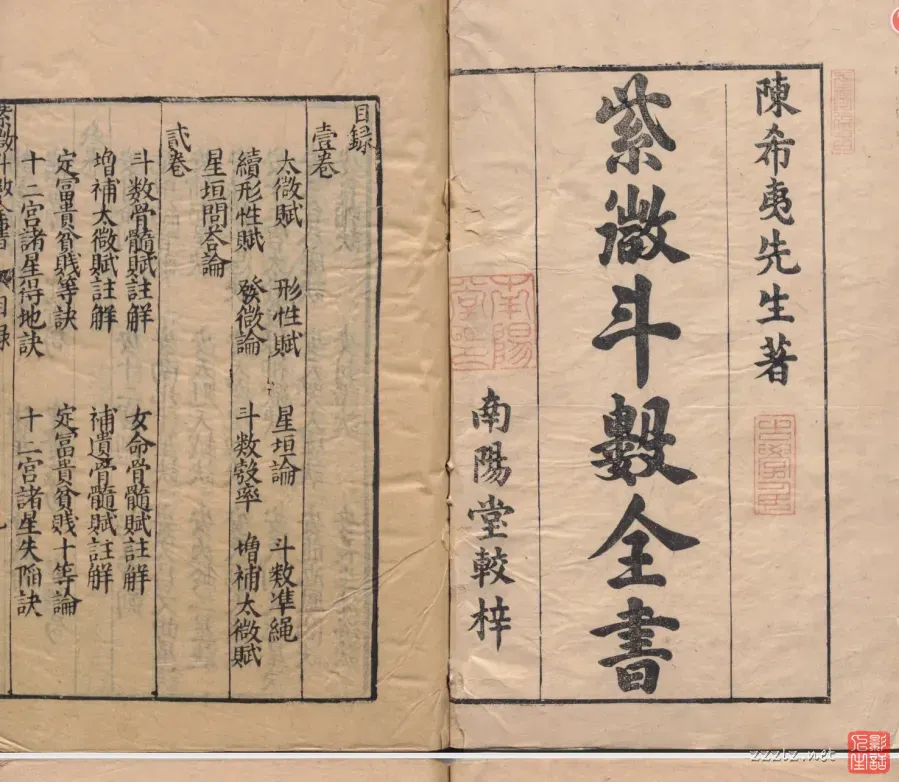 陳希夷先生著
紫微斗數全書
南陽堂較梓
南陽
堂
目録
壹卷
太微賦 形性賦 星垣論 斗数準繩
續形性賦 發微論 斗数彀率 増補太微賦
星垣問答論
貳卷
斗数骨髓賦註解 女命骨髓賦註解
増補太微賦註解 補遺骨髓賦註解
定富貴貧賎等訣 定富貴貧賎十等論
十二宫諸星得地訣 十二宫諸星失陷訣
紫微斗数全書 目録
zzzlz.net